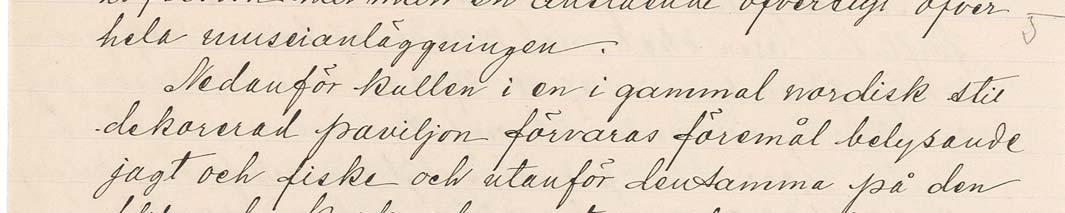 en öfversigt öfver
hela museianläggningen.
Nedanför kullen i en i gammal nordisk stil
dekorerad paviljon förvaras föremål belysande
jagt och fiske och utanför densamma på den